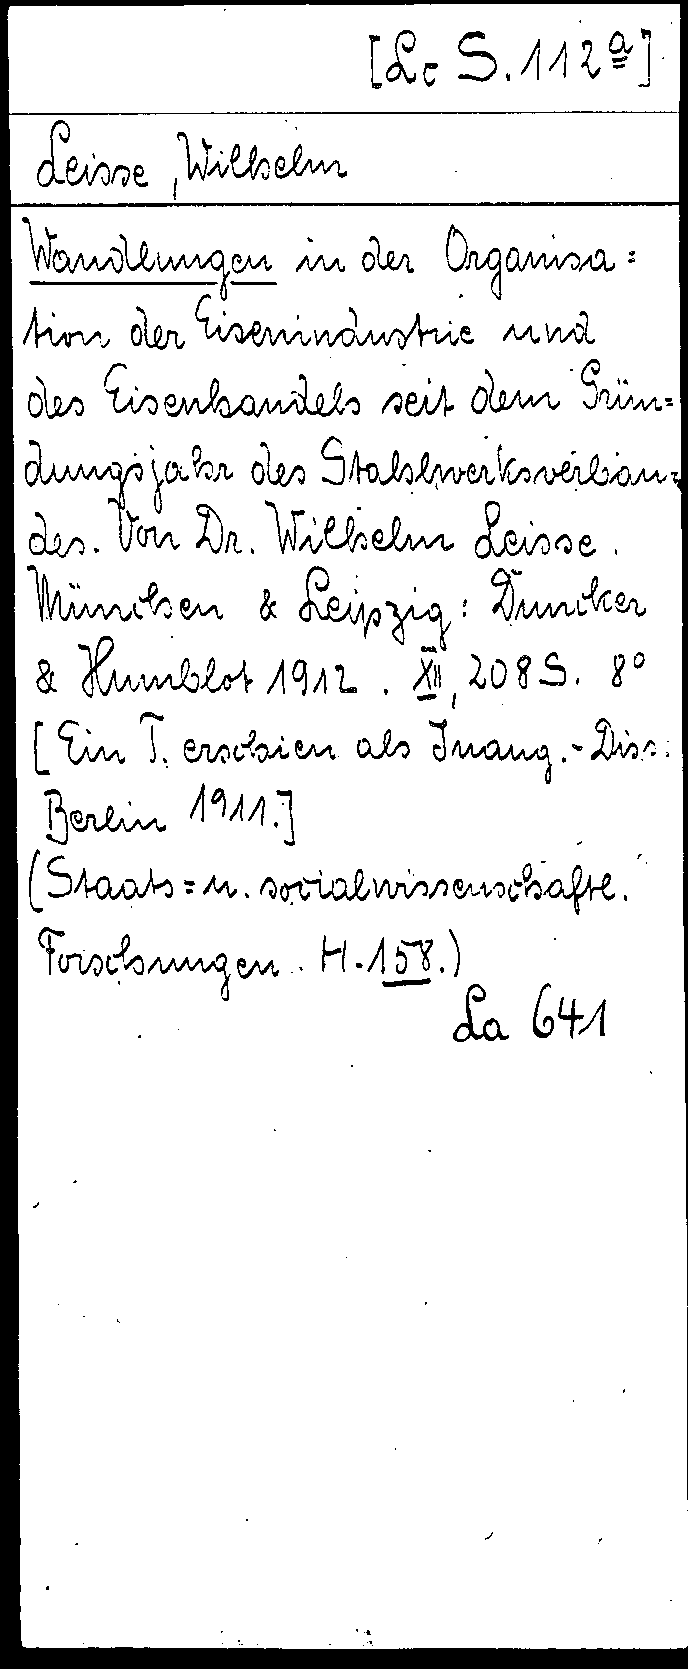 [Lc S. 112a]
Leisse, Wilhelm
Wandlungen in der Organisa=
tion der Eisenindustrie und
des Eisenhandels seit dem Grün=
dungsjahr des Stahlwerksverban=
des. Von Dr. Wilhelm Leisse.
München & Leipzig: Duncker
& Humblot 1912. XII, 208 S. 8°
[Ein T. erschien als Inaug.-Diss.
Berlin 1911.]
(Staats= u. socialwissenschaftl.
Forschungen. H. 158.)
La 641